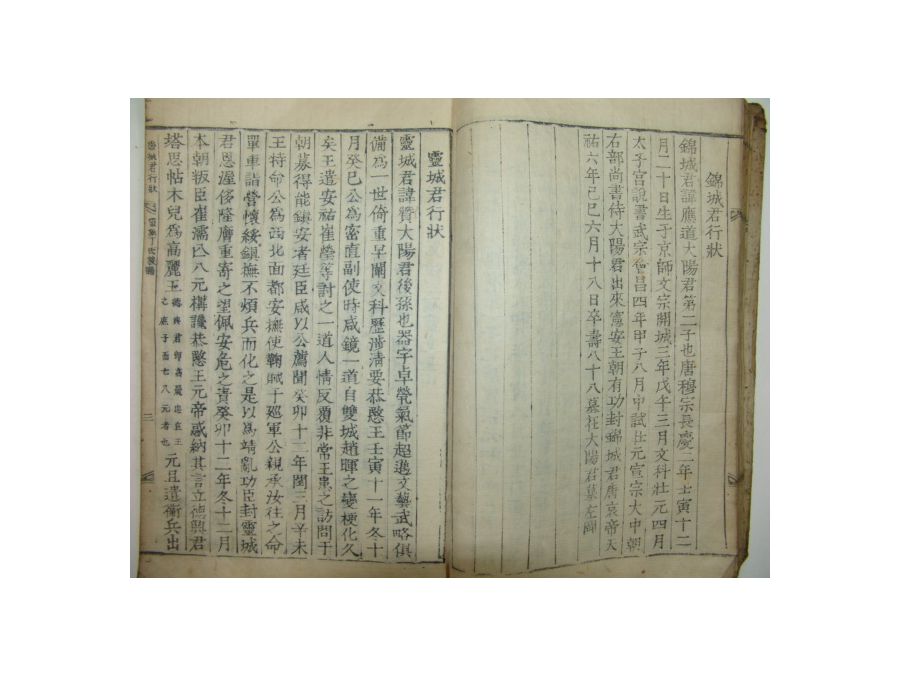 錦城君行狀
錦城君諱應道大陽君第二子也唐穆宗長慶二年壬寅十二
月二十日生于京師文宗開城三年戊午三月文科壯元四月
太子宮說書武宗會昌四年甲子八月中試壯元宣宗大中朝
右部尚書侍大陽君出來憲安王朝有功封錦城君唐哀帝天
祐六年己巳六月十八日卒壽八十八墓在大陽君墓左
靈城君行狀
靈城君諱贊大陽君後孫也器宇卓犖氣節超邁文藝武略俱
備爲一世倚重早闡文科歷敭清要恭愍王壬寅十一年冬十
月癸巳公爲密直副使時咸鏡一道自雙城趙暉之變梗化久
矣王遣安祐崔瑩等討之一道人情反覆非常王患之訪問于
朝募得能鎭安者廷臣咸以公薦聞癸卯十二年閏三月辛未
王特命公爲西北面都安撫使鞠賊于巡軍公親承汝往之命
單車詣營懷綏鎭撫不煩兵而化之是以爲靖亂功臣封靈城
君君恩渥侈隆膺重寄之望佩安危之責癸卯十二年冬十二月
本朝叛臣崔濡區八元構讒恭愍王元帝惑納其言立德興君
塔思帖木兒爲高麗王德興君卽高麗忠宣王之庶子而 八元者也元且遣衛兵出
靈城君行狀
三